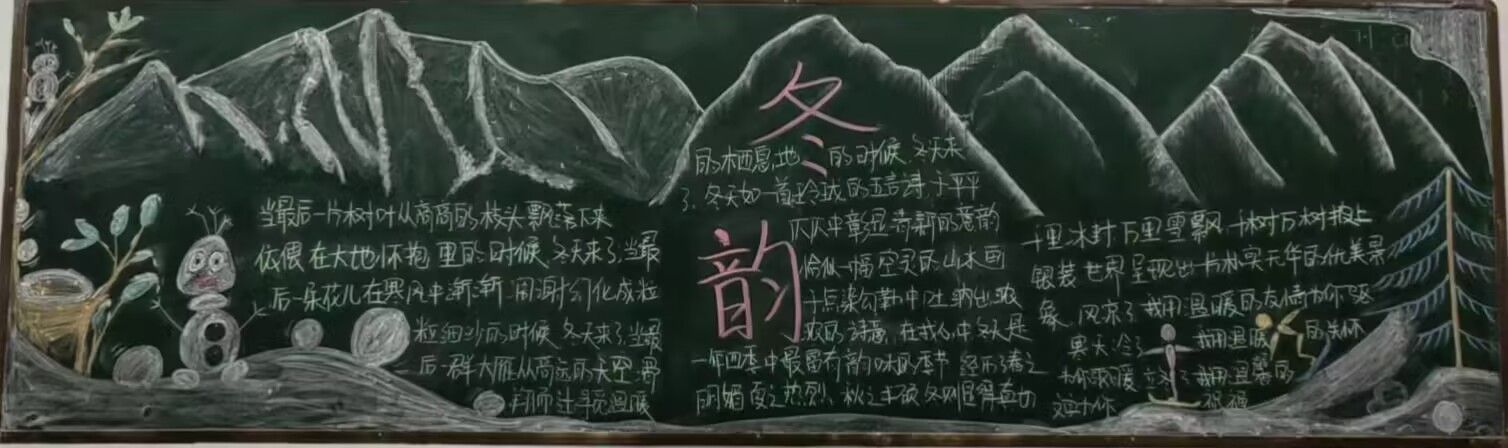 冬韵
当最后一片树叶从高高的枝头飘落下来
依偎在大地怀抱里的时候,冬天来了,当最
后一朵花儿在寒风中渐渐凋谢幻化成粒
粒细沙的时候,冬天来了,当最
后一群大雁从高远的天空
寻觅温暖
的栖息地的时候,冬天来
了,冬天如一首玲珑的五言诗,于平平
仄仄中彰显清新的意韵
恰似一幅空灵的山水画
于点染勾勒中吐纳出浓
浓的诗意,在我心中冬天是
一年四季中最富有韵味的季节 经历了春之
明媚 夏之热烈、秋之丰硕 冬则显得真切
千里冰封 万里雪飘,一树万树披上
银装 世界呈现出一片朴实无华的优美景
象,风来了 我用温暖的友情为你驱
寒 天冷了 我用温暖的关怀
为你取暖 冬来了 我用温馨的
祝福